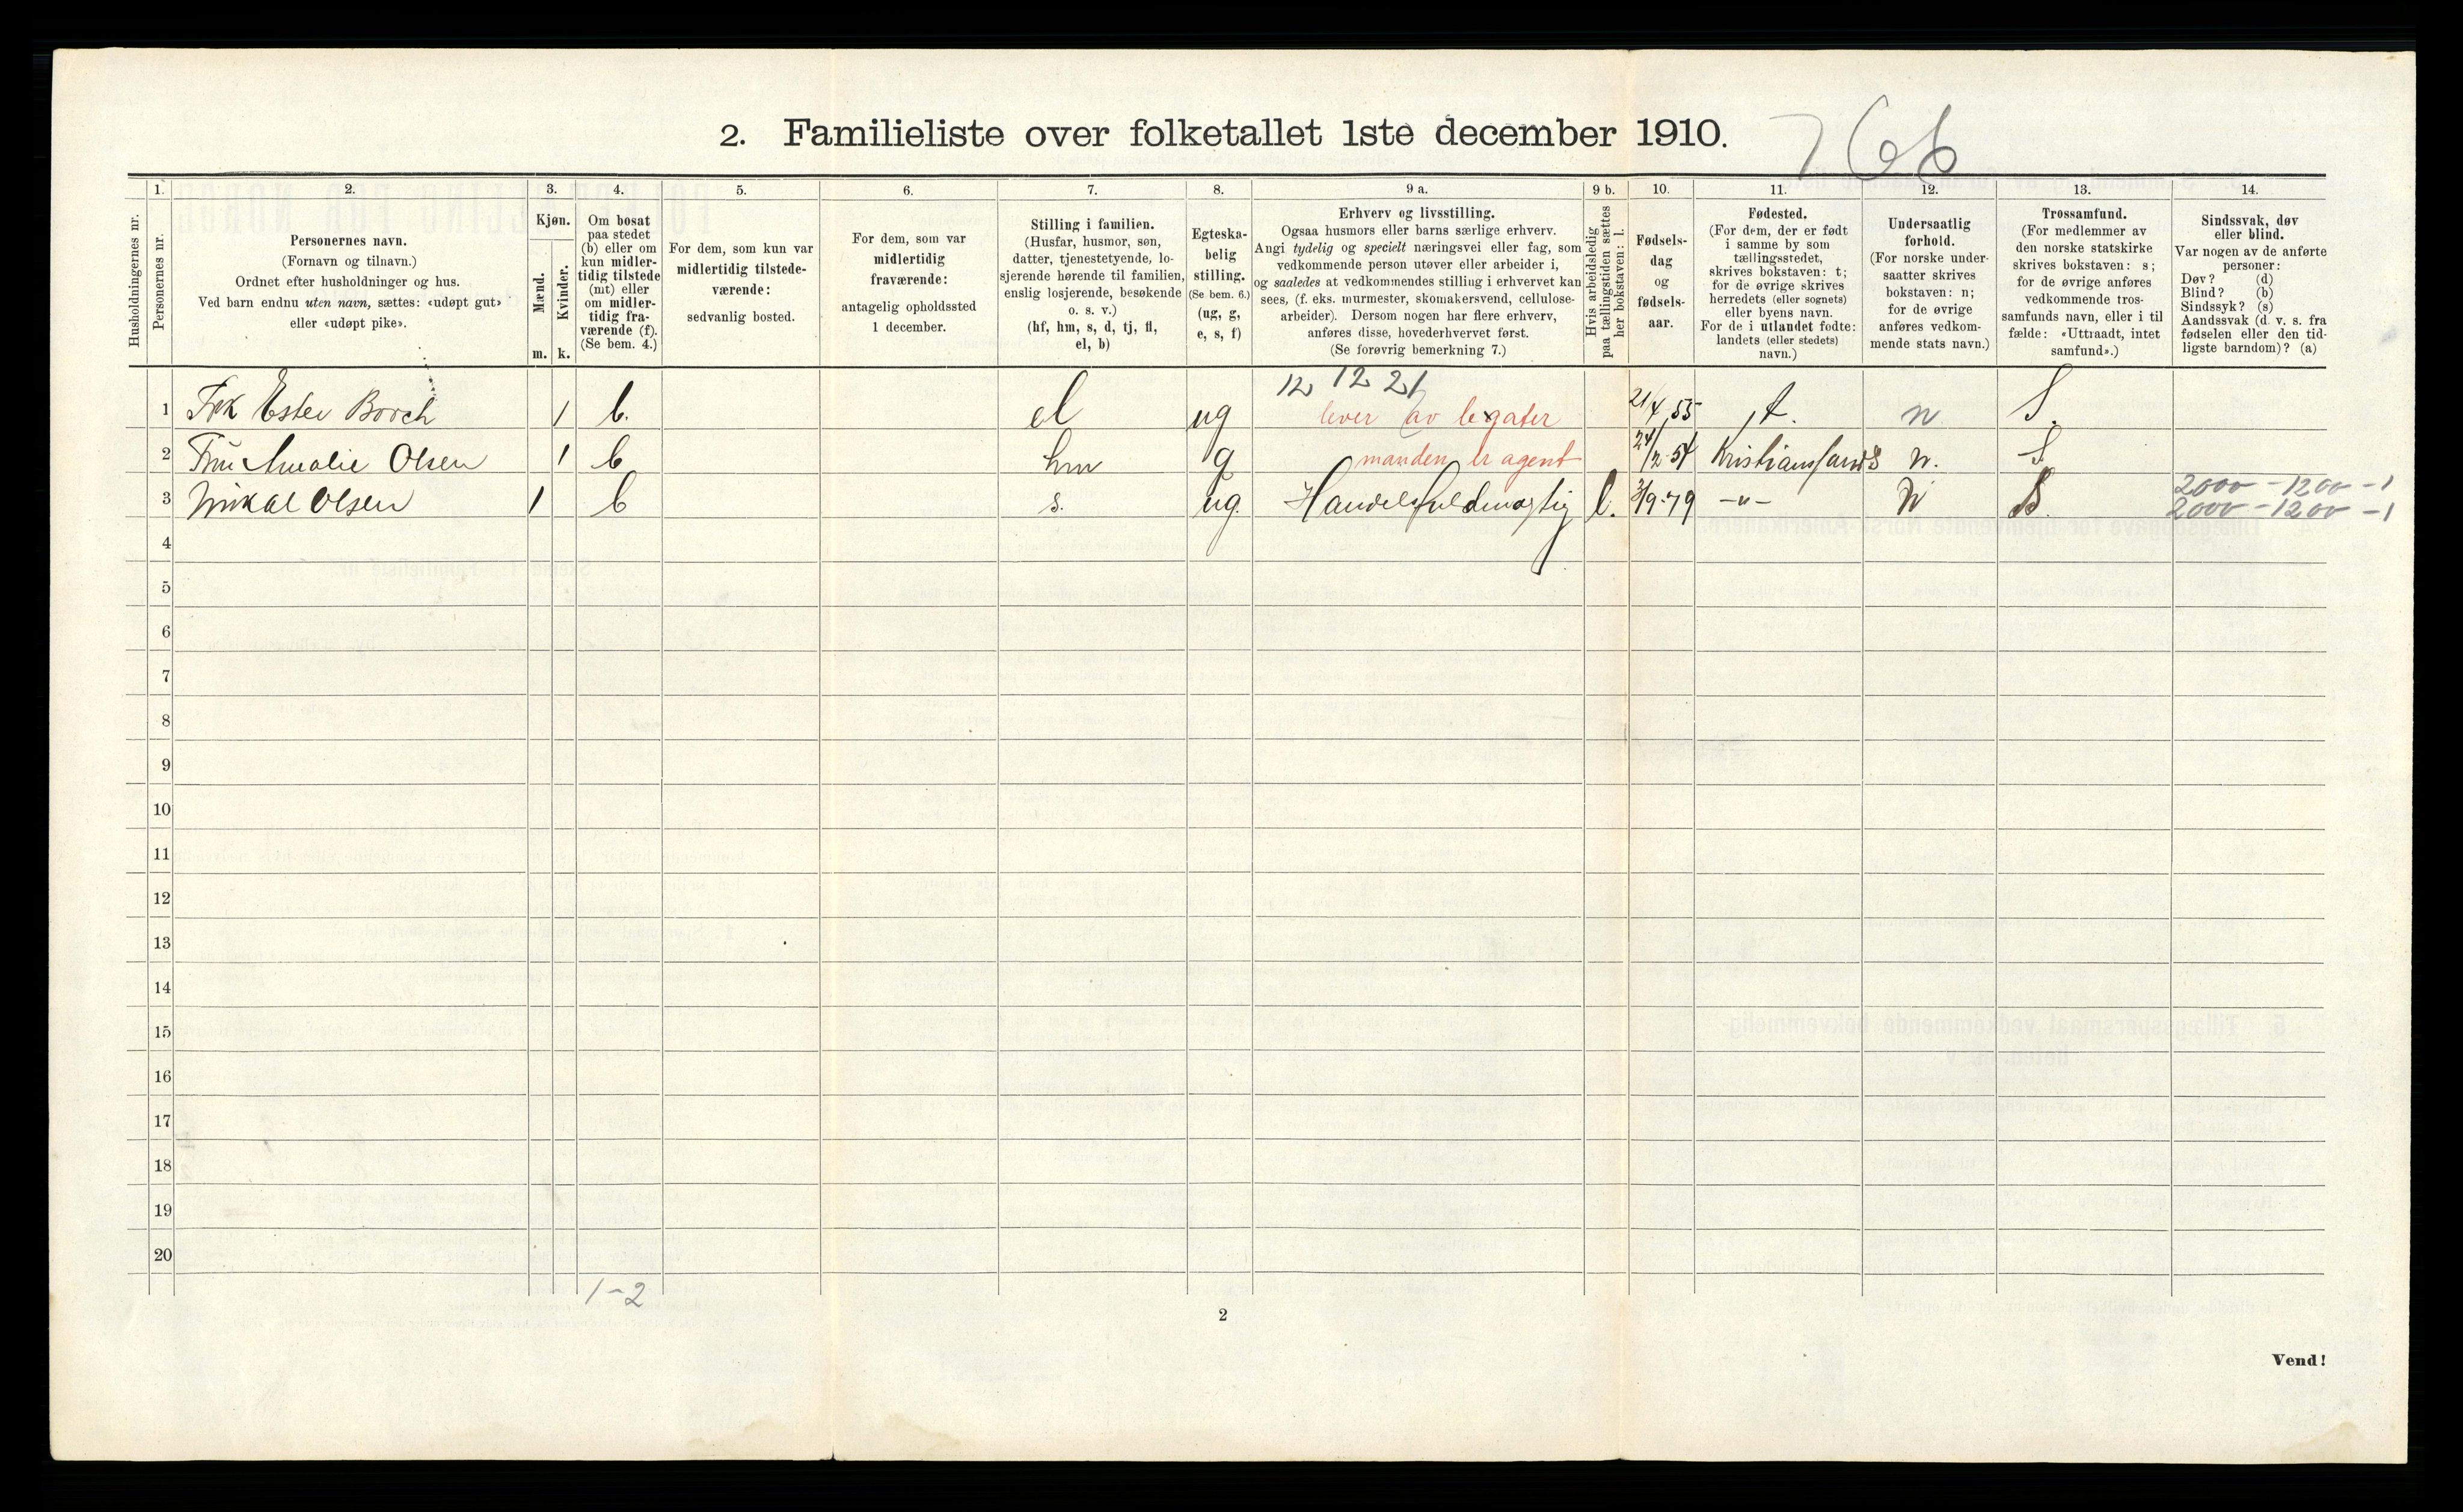 2. Familieliste over folketallet 1ste december 1910.
766
Husholdningernes nr.
1.
Personernes nr.
2.
Personernes navn.
(Fornavn og tilnavn.)
Ordnet efter husholdninger og hus.
Ved barn endnu uten navn, sættes: «udøpt gut»
eller «udøpt pike».
3.
Kjøn.
Mænd.
Kvinder.
m. k.
4.
Om bosat
paa stedet
(b) eller om
kun midler-
tidig tilstede
(mt) eller
om midler-
tidig fra-
værende (f).
(Se bem. 4.)
5.
For dem, som kun var
midlertidig tilstede-
værende:
sedvanlig bosted.
6.
For dem, som var
midlertidig
fraværende:
antagelig opholdssted
1 december.
7.
Stilling i familien.
(Husfar, husmor, søn,
datter, tjenestetyende, lo-
sjerende hørende til familien,
enslig losjerende, besøkende
o. s. v.)
(hf, hm, s, d, tj, fl,
el, b)
8.
Egteska-
belig
stilling.
(Se bem. 6.)
(ug, g,
e, s, f)
9 a.
Erhverv og livsstilling.
Ogsaa husmors eller barns særlige erhverv.
Angi tydelig og specielt næringsvei eller fag, som
vedkommende person utøver eller arbeider i,
og saaledes at vedkommendes stilling i erhvervet kan
sees, (f. eks. murmester, skomakersvend, cellulose-
arbeider). Dersom nogen har flere erhverv,
anføres disse, hovederhvervet først.
(Se forøvrig bemerkning 7.)
9 b.
Hvis arbeidsledig
paa tællingstiden sættes
her bokstaven: l.
10.
Fødsels-
dag
og
fødsels-
aar.
11.
Fødested.
(For dem, der er født
i samme by som
tællingsstedet,
skrives bokstaven: t;
for de øvrige skrives
herredets (eller sognets)
eller byens navn.
For de i utlandet fødte:
landets (eller stedets)
navn.)
12.
Undersaatlig
forhold.
(For norske under-
saatter skrives
bokstaven: n;
for de øvrige
anføres vedkom-
mende stats navn.)
13.
Trossamfund.
(For medlemmer av
den norske statskirke
skrives bokstaven: s;
for de øvrige anføres
vedkommende tros-
samfunds navn, eller i til
fælde: «Uttraadt, intet
samfund».)
14.
Sindssvak, døv
eller blind.
Var nogen av de anførte
personer:
Døv? (d)
Blind? (b)
Sindssyk? (s)
Aandssvak (d. v. s. fra
fødselen eller den tid-
ligste barndom)? (a)
12 12 21
1 Frk Ester Borch 1 b. el ug lever av legater 21/4 55 t. n S.
2 Fru Amalie Olsen 1 b hm g manden er agent 24/12 54 Kristianssands n. S
2000 - 1200 - 1
3 Mikal Olsen 1 b s. ug. Handelsfuldmægtig l. 3/9-79 -"- N S.
2000 - 1200 - 1
4
5
6
7
8
9
10
11
12
13
14
15
16
17
18
19
20
1-2
2
Vend!